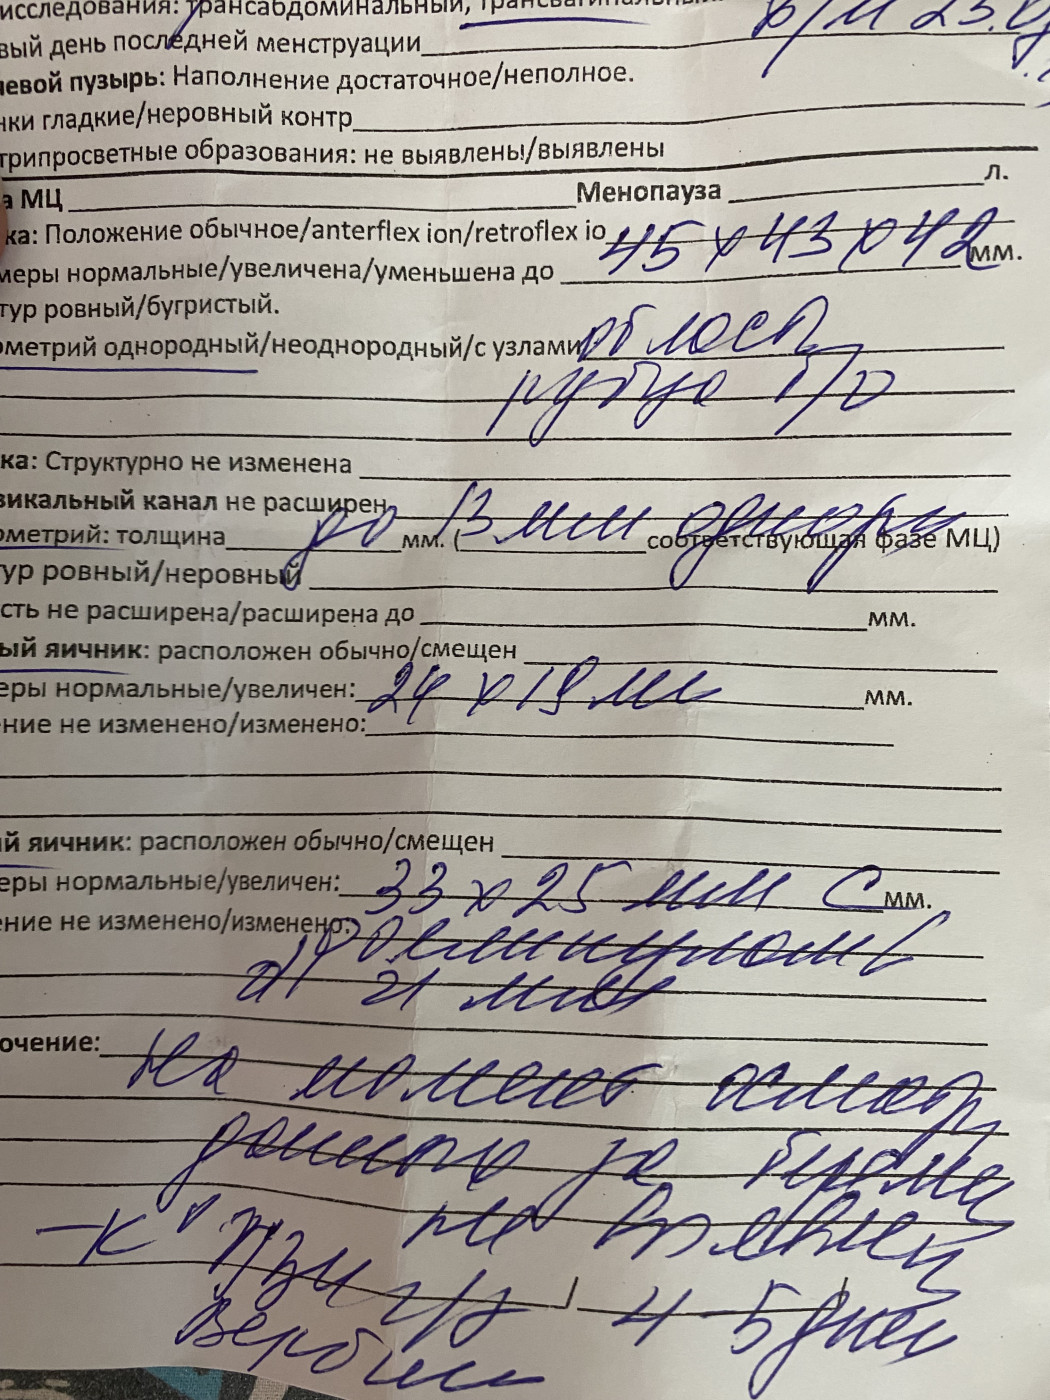 исследования: трансабдоминальный, трансвагинальный
вый день последней менструации п/м 23.0
чевой пузырь: Наполнение достаточное/неполное.
нки гладкие/неровный контр
трипросветные образования: не выявлены/выявлены
а МЦ Менопауза л.
ка: Положение обычное/anterflex ion/retroflex io
меры нормальные/увеличена/уменьшена до 45 х 43 х 42 мм.
тур ровный/бугристый.
ометрий однородный/неоднородный/с узлами область
рубца б/о
ка: Структурно не изменена
викальный канал не расширен
ометрий: толщина до 13 мм однор мм. ( соответствующая фазе МЦ)
тур ровный/неровный
сть не расширена/расширена до мм.
ый яичник: расположен обычно/смещен
еры нормальные/увеличен: 24 х 19 мм мм.
ение не изменено/изменено:
й яичник: расположен обычно/смещен
еры нормальные/увеличен: 33 х 25 мм с мм.
ение не изменено/изменено: фолликулом
d 21 мм
ючение: На момент осмотр
данных за берем
не
-к УЗИ ч/з 4-5 дней